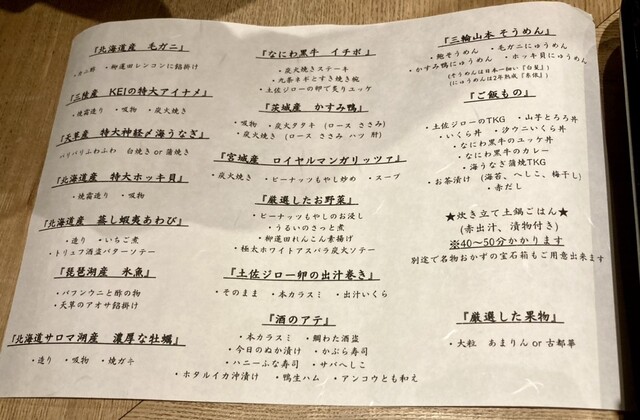 『北海道産　毛ガニ』
・カニ酢　・柳蓮田レンコンに餡掛け
『三陸産　KEIの特大アイナメ』
・焼霜造り　・吸物　・炭火焼き
『天草産　特大神経〆海うなぎ』
パリパリふわふわ　白焼き or 蒲焼き
『北海道産　特大ホッキ貝』
・焼霜造り　・吸物
『北海道産　蒸し蝦夷あわび』
・造り　・いちご煮
・トリュフ酒盗バターソテー
『琵琶湖産　氷魚』
・バフンウニと酢の物
・天草のアオサ餡掛け
『北海道サロマ湖産　濃厚な牡蠣』
・造り　・吸物　・焼ガキ
『なにわ黒牛　イチボ』
・炭火焼きステーキ
・九条ネギとすき焼き椀
・土佐ジローの卵で炙りユッケ
『茨城産　かすみ鴨』
・吸物　・炭火タタキ（ロース ささみ）
・炭火焼き（ロース ささみ ハツ 肝）
『宮城産　ロイヤルマンガリッツァ』
・炭火焼き　・ピーナッツもやし炒め　・スープ
『厳選したお野菜』
・ピーナッツもやしのお浸し
・うるいのさっと煮
・柳蓮田れんこん素揚げ
・極太ホワイトアスパラ炭火ソテー
『土佐ジロー卵の出汁巻き』
・そのまま　・本カラスミ　・出汁いくら
『酒のアテ』
・本カラスミ　・鯛わた酒盗
・今日のぬか漬け　・かぶら寿司
・ハニーふな寿司　・サバへしこ
・ホタルイカ沖漬け　・鴨生ハム　・アンコウとも和え
『三輪山本 そうめん』
・鮑そうめん　・毛ガニにゅうめん
・かすみ鴨にゅうめん　・ホッキ貝にゅうめん
（そうめんは日本一細い「白髪」）
（にゅうめんは2年熟成）
『ご飯もの』
・土佐ジローのTKG　・山芋とろろ丼
・いくら丼　・汐ウニいくら丼
・なにわ黒牛のユッケ丼
・なにわ黒牛のカレー
・海うなぎ蒲焼TKG
・お茶漬け（海苔、へしこ、梅干し）
・赤だし
★炊き立て土鍋ごはん★
（赤出汁、漬物付き）
※40～50分かかります
別途で名物おかずの宝石箱もご用意出来ます
『厳選した果物』
・大粒　あまりん or 古都華